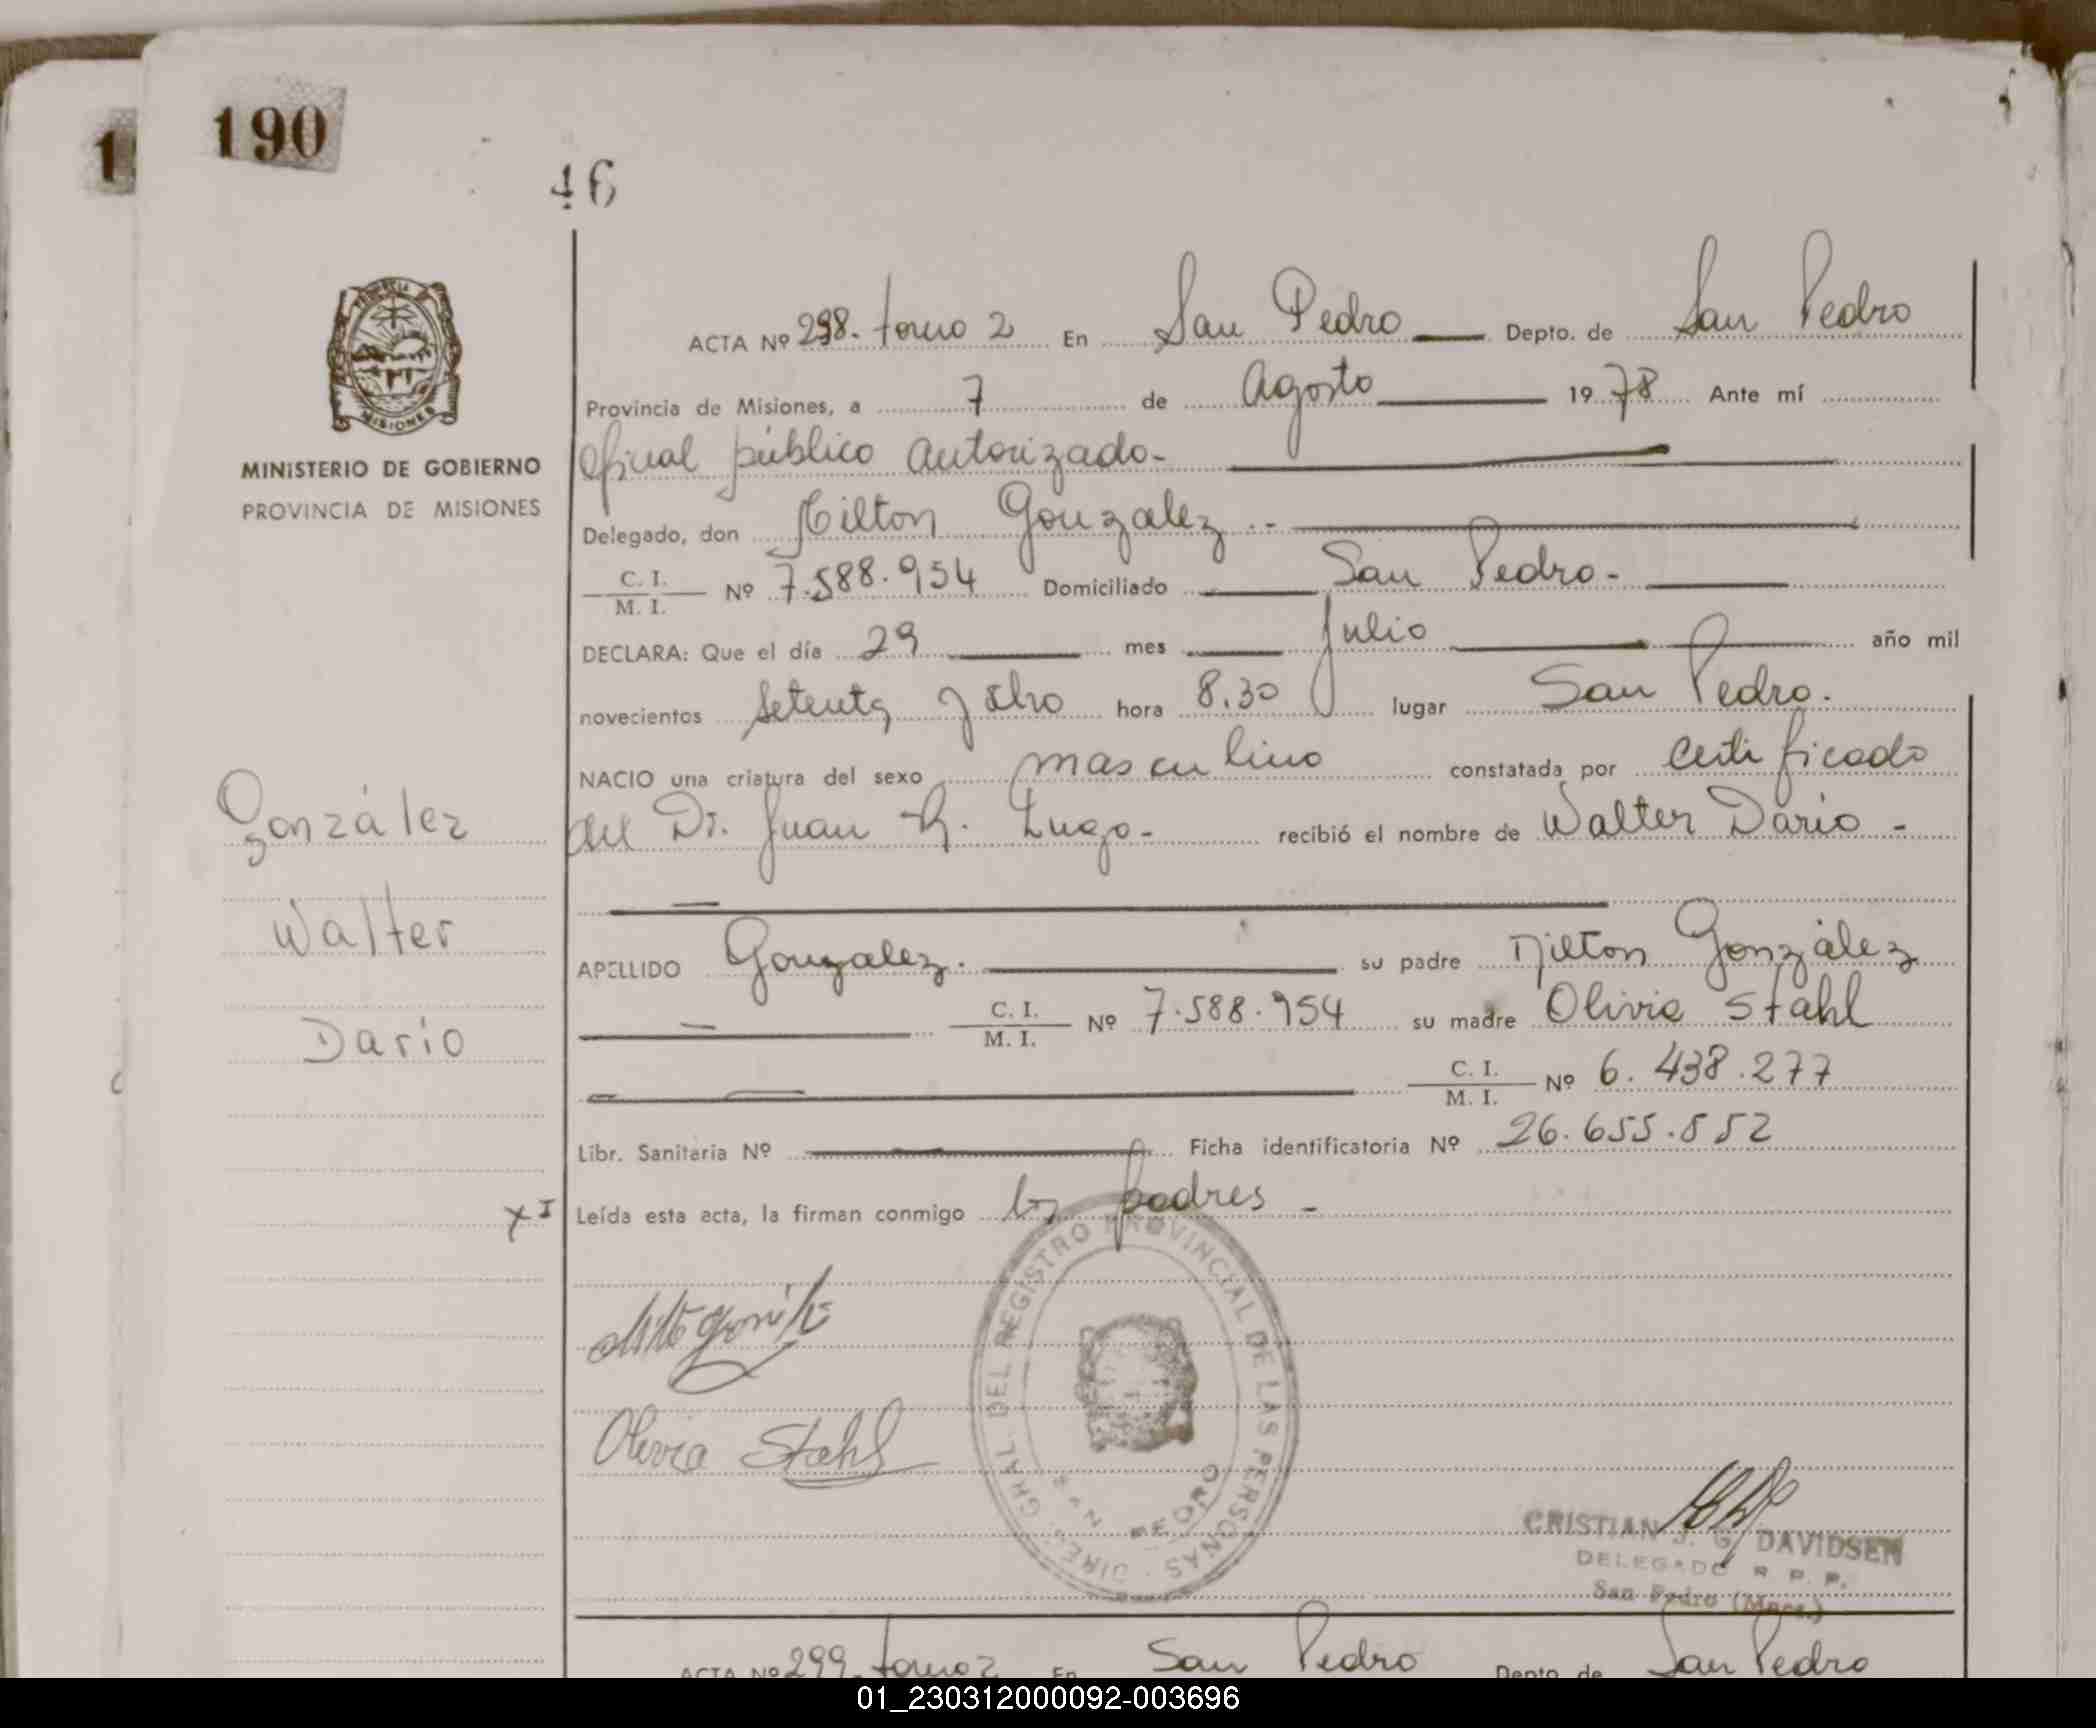 190
46
PROVINCIA
MISIONES
MINISTERIO DE GOBIERNO
PROVINCIA DE MISIONES
ACTA Nº 298. tomo 2 En San Pedro Depto. de San Pedro
Provincia de Misiones, a 7 de Agosto 1978 Ante mí
oficial público autorizado-
Delegado, don Nilton Gonzalez.-
C. I.
M. I.
Nº 7.588.954 Domiciliado San Pedro-
DECLARA: Que el día 29 mes Julio año mil
novecientos setenta y ocho hora 8.30 lugar San Pedro.
NACIO una criatura del sexo masculino constatada por certificado
del Dr. Juan R. Lugo- recibió el nombre de Walter Dario -
APELLIDO Gonzalez. su padre Nilton González
C. I.
M. I.
Nº 7.588.954 su madre Olivia Stahl
C. I.
M. I.
Nº 6.438.277
Libr. Sanitaria Nº Ficha identificatoria Nº 26.655.852
Leída esta acta, la firman conmigo los padres -
González
Walter
Dario
Olivia Stahl
DIREC. GRAL. DEL REGISTRO PROVINCIAL DE LAS PERSONAS
SAN PEDRO
CRISTIAN J. G. DAVIDSEN
DELEGADO R. P. P.
San Pedro (Mnes.)
ACTA Nº 299. tomo 2 En San Pedro Depto. de San Pedro
01_230312000092-003696